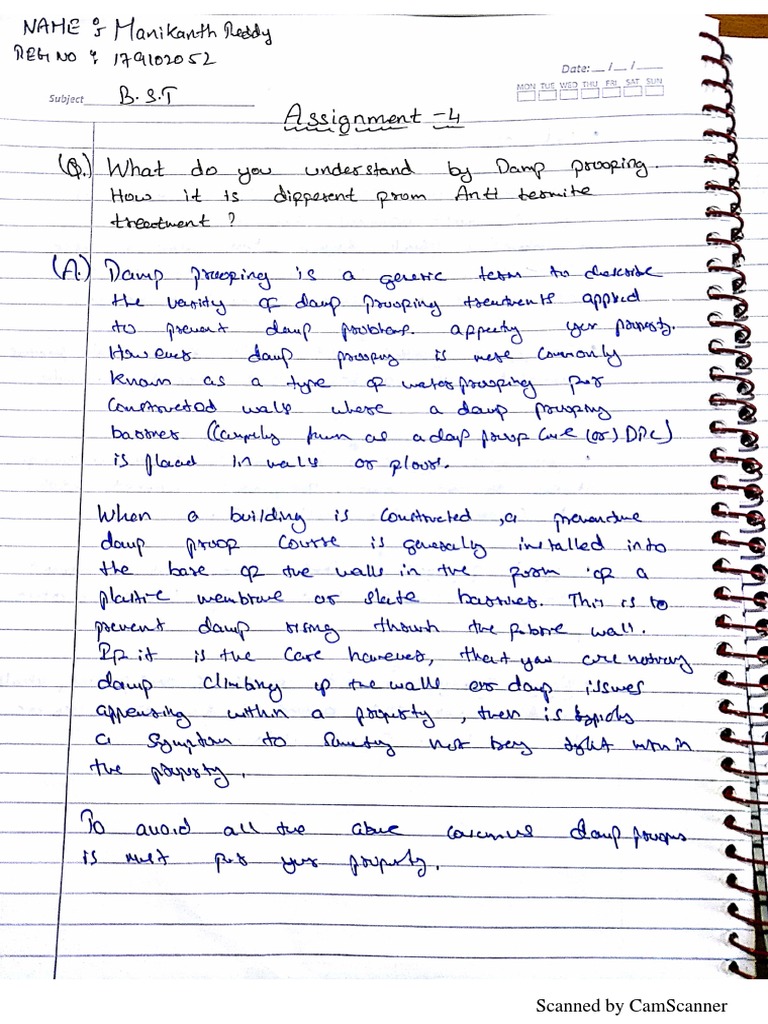 NAME : Manikanth Reddy
REG NO : 179102052
Date: __/__/__
MON TUE WED THU FRI SAT SUN
Subject B.S.T
Assignment -4
(Q.) What do you understand by Damp proofing.
How it is different from Anti termite
treatment ?
(A.) Damp proofing is a generic term to describe
the varity of damp proofing treatments applied
to prevent damp problems. affecting your property.
However damp proofing is more commonly
known as a type of waterproofing for
constructed walls where a damp proofing
barrier ( as a damp proof (or) DPC)
is placed in walls or floors.
When a building is constructed , a preventive
damp proof course is generally installed into
the base of the walls in the form of a
plastic membrane or slate barriers. This is to
prevent damp rising through the wall.
If it is the case however, that you are noticing
damp climbing up the walls or damp issues
appearing within a property , then is typically
a symptom to not being right within
the property.
To avoid all the above damp
is must for your property.
Scanned by CamScanner